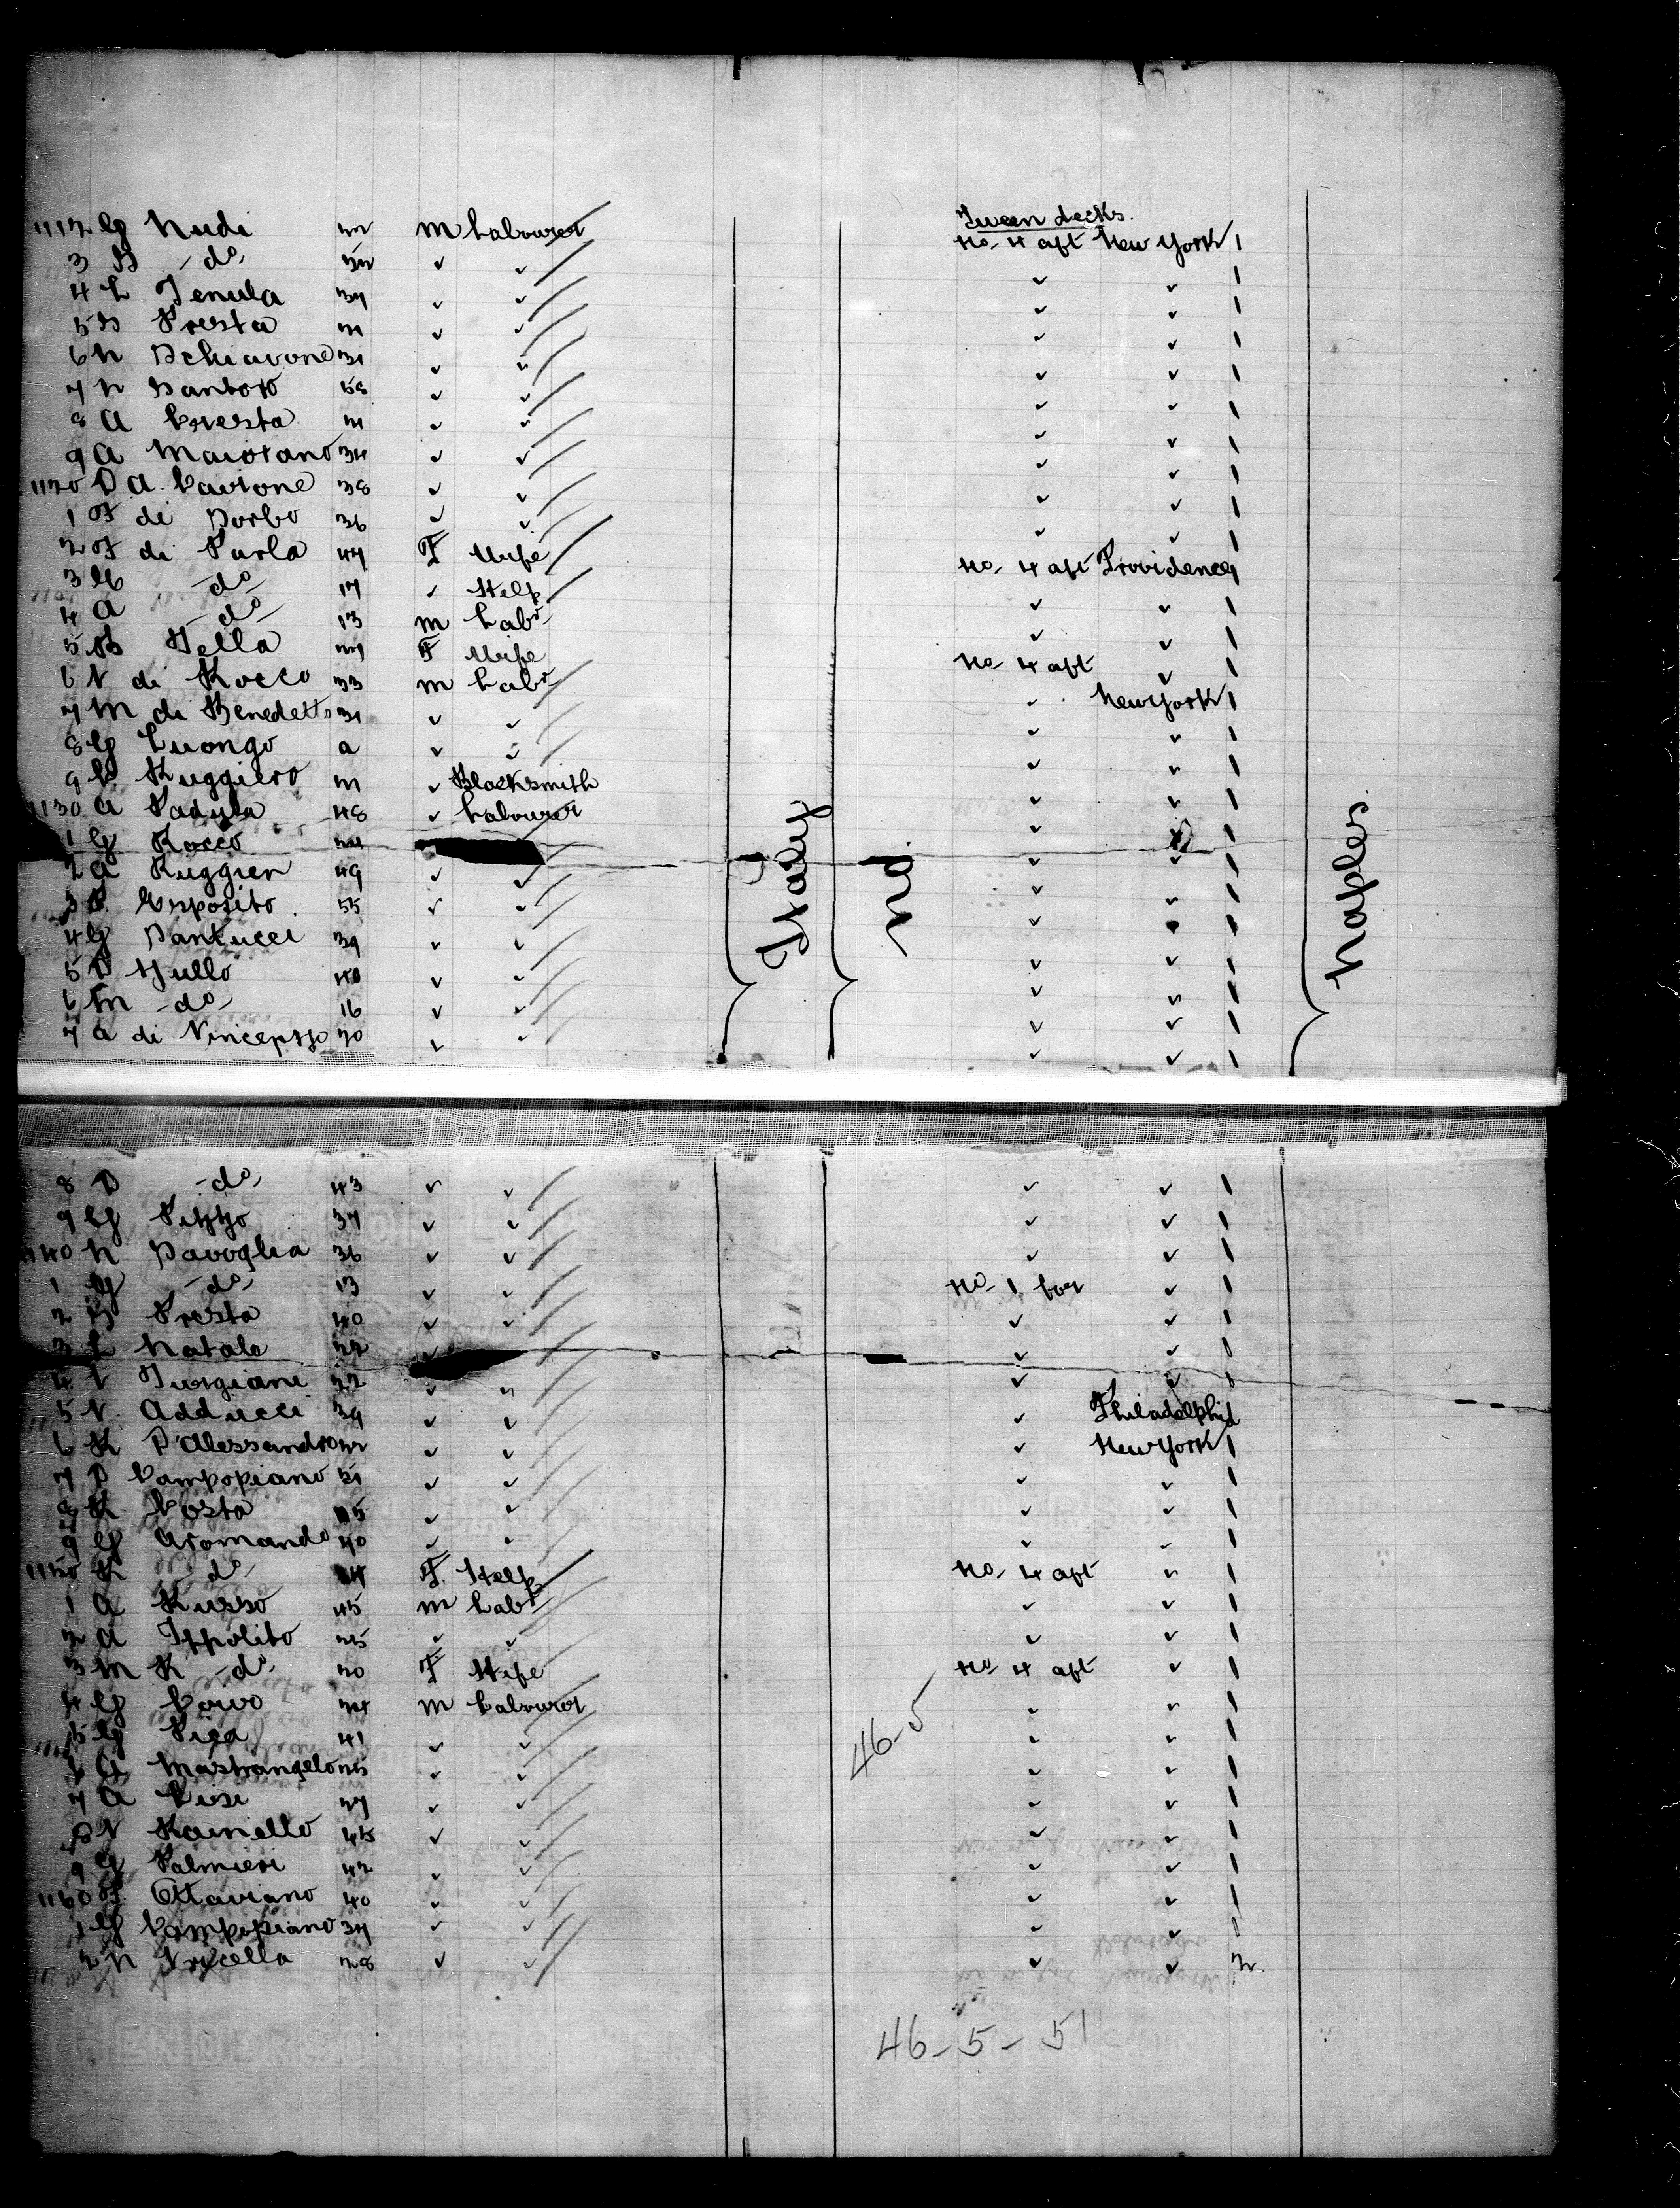 Tween decks
1112 G Nudi 22 M Labourer No 4 aft New York 1
3 B -do- ✓ ✓ ✓ ✓ 1
4 L Tenula 37 ✓ ✓ ✓ ✓ 1
5 B Presta 21 ✓ ✓ ✓ ✓ 1
6 N Schiavone 31 ✓ ✓ ✓ ✓ 1
7 N Santoro 58 ✓ ✓ ✓ ✓ 1
8 A Cresta 21 ✓ ✓ ✓ ✓ 1
9 A Maiorano 34 ✓ ✓ ✓ ✓ 1
1120 D A Cavione 38 ✓ ✓ ✓ ✓ 1
1 F di Sorbo 36 ✓ ✓ ✓ ✓ 1
2 F di Parla 47 F Wife No 4 aft Providence 1
3 -do- 17 ✓ Help ✓ ✓ 1
4 A -do- 13 M Labr ✓ ✓ 1
5 B Tella 27 F Wife No 4 aft ✓ 1
6 V di Rocco 33 M Labr ✓ New York 1
7 M di Benedetto 31 ✓ ✓ ✓ ✓ 1
8 G Luongo ✓ ✓ ✓ ✓ 1
9 Ruggiero 21 ✓ Blacksmith ✓ ✓ 1
1130 A Padula 48 ✓ Labourer ✓ ✓ 1
1 G Rocco 24 ✓ 1
2 G Ruggier 49 ✓ ✓ ✓ ✓ 1
3 Esposito 55 ✓ ✓ ✓ ✓ 1
4 G Santucci 39 ✓ ✓ ✓ 1
5 D Gullo 40 ✓ ✓ ✓ ✓ 1
6 M -do- 16 ✓ ✓ ✓ ✓ 1
7 A di Vincenzo 20 ✓ ✓ ✓ ✓ 1
Italy
No
Naples
8 D -do- 43 ✓ ✓ ✓ ✓ 1
9 G Pizzo 37 ✓ ✓ ✓ ✓ 1
1140 N Savoglia 36 ✓ ✓ ✓ ✓ 1
1 G -do- 13 ✓ ✓ No 1 for ✓ 1
2 B Presta 40 ✓ ✓ ✓ ✓ 1
3 L Natale 22 ✓ ✓ ✓ 1
4 V Turgiani 22 ✓ ✓ ✓ ✓ 1
5 V Adducci 39 ✓ ✓ ✓ Philadelphia 1
6 R D'Alessandro 22 ✓ ✓ ✓ New York 1
7 D Campopiano 51 ✓ ✓ ✓ ✓ 1
8 R Costa ✓ ✓ ✓ ✓ 1
9 G Aromando 40 ✓ ✓ ✓ ✓ 1
1150 R -do- F Help No 4 aft ✓ 1
1 A Russo 45 M Labr ✓ ✓ 1
2 A Ippolito 25 ✓ ✓ ✓ ✓ 1
3 M R -do- 20 F Wife No 4 aft ✓ 1
4 G Corvo 24 M Labourer ✓ ✓ 1
5 G Pica 41 ✓ ✓ ✓ ✓ 1
6 A Mastrangelo 25 ✓ ✓ ✓ ✓ 1
7 A Pisi 27 ✓ ✓ ✓ ✓ 1
8 V Rainello 45 ✓ ✓ ✓ ✓ 1
9 G Palmieri 42 ✓ ✓ ✓ ✓ 1
1160 F Ottaviano 40 ✓ ✓ ✓ ✓ 1
1 G Campopiano 37 ✓ ✓ ✓ ✓ 1
2 N Tricella 28 ✓ ✓ ✓ ✓ 2
46-5
46-5-51